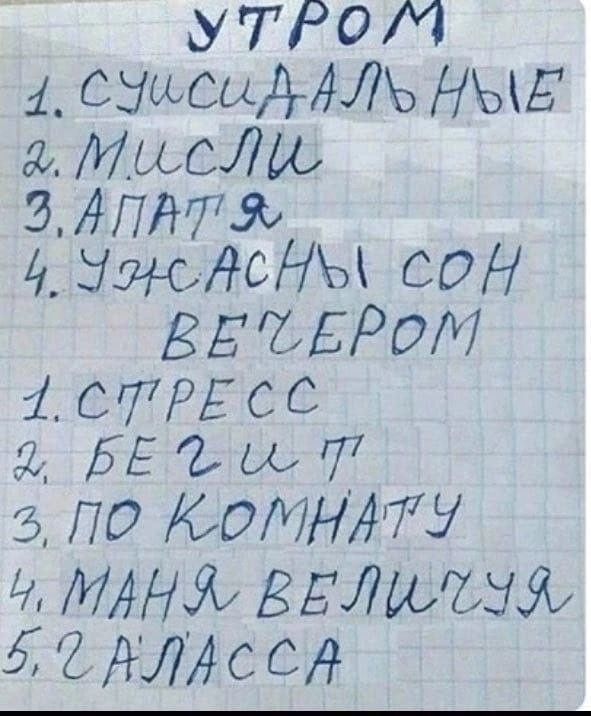 УТРОМ
1. СУИСИДАЛЬНЫЕ
2. МИСЛИ
3. АПАТЯ
4. УЖАСНЫ СОН
ВЕЧЕРОМ
1. СТРЕСС
2. БЕГИТ
3. ПО КОМНАТУ
4. МАНЯ ВЕЛИЧУЯ
5. ГАЛАССА